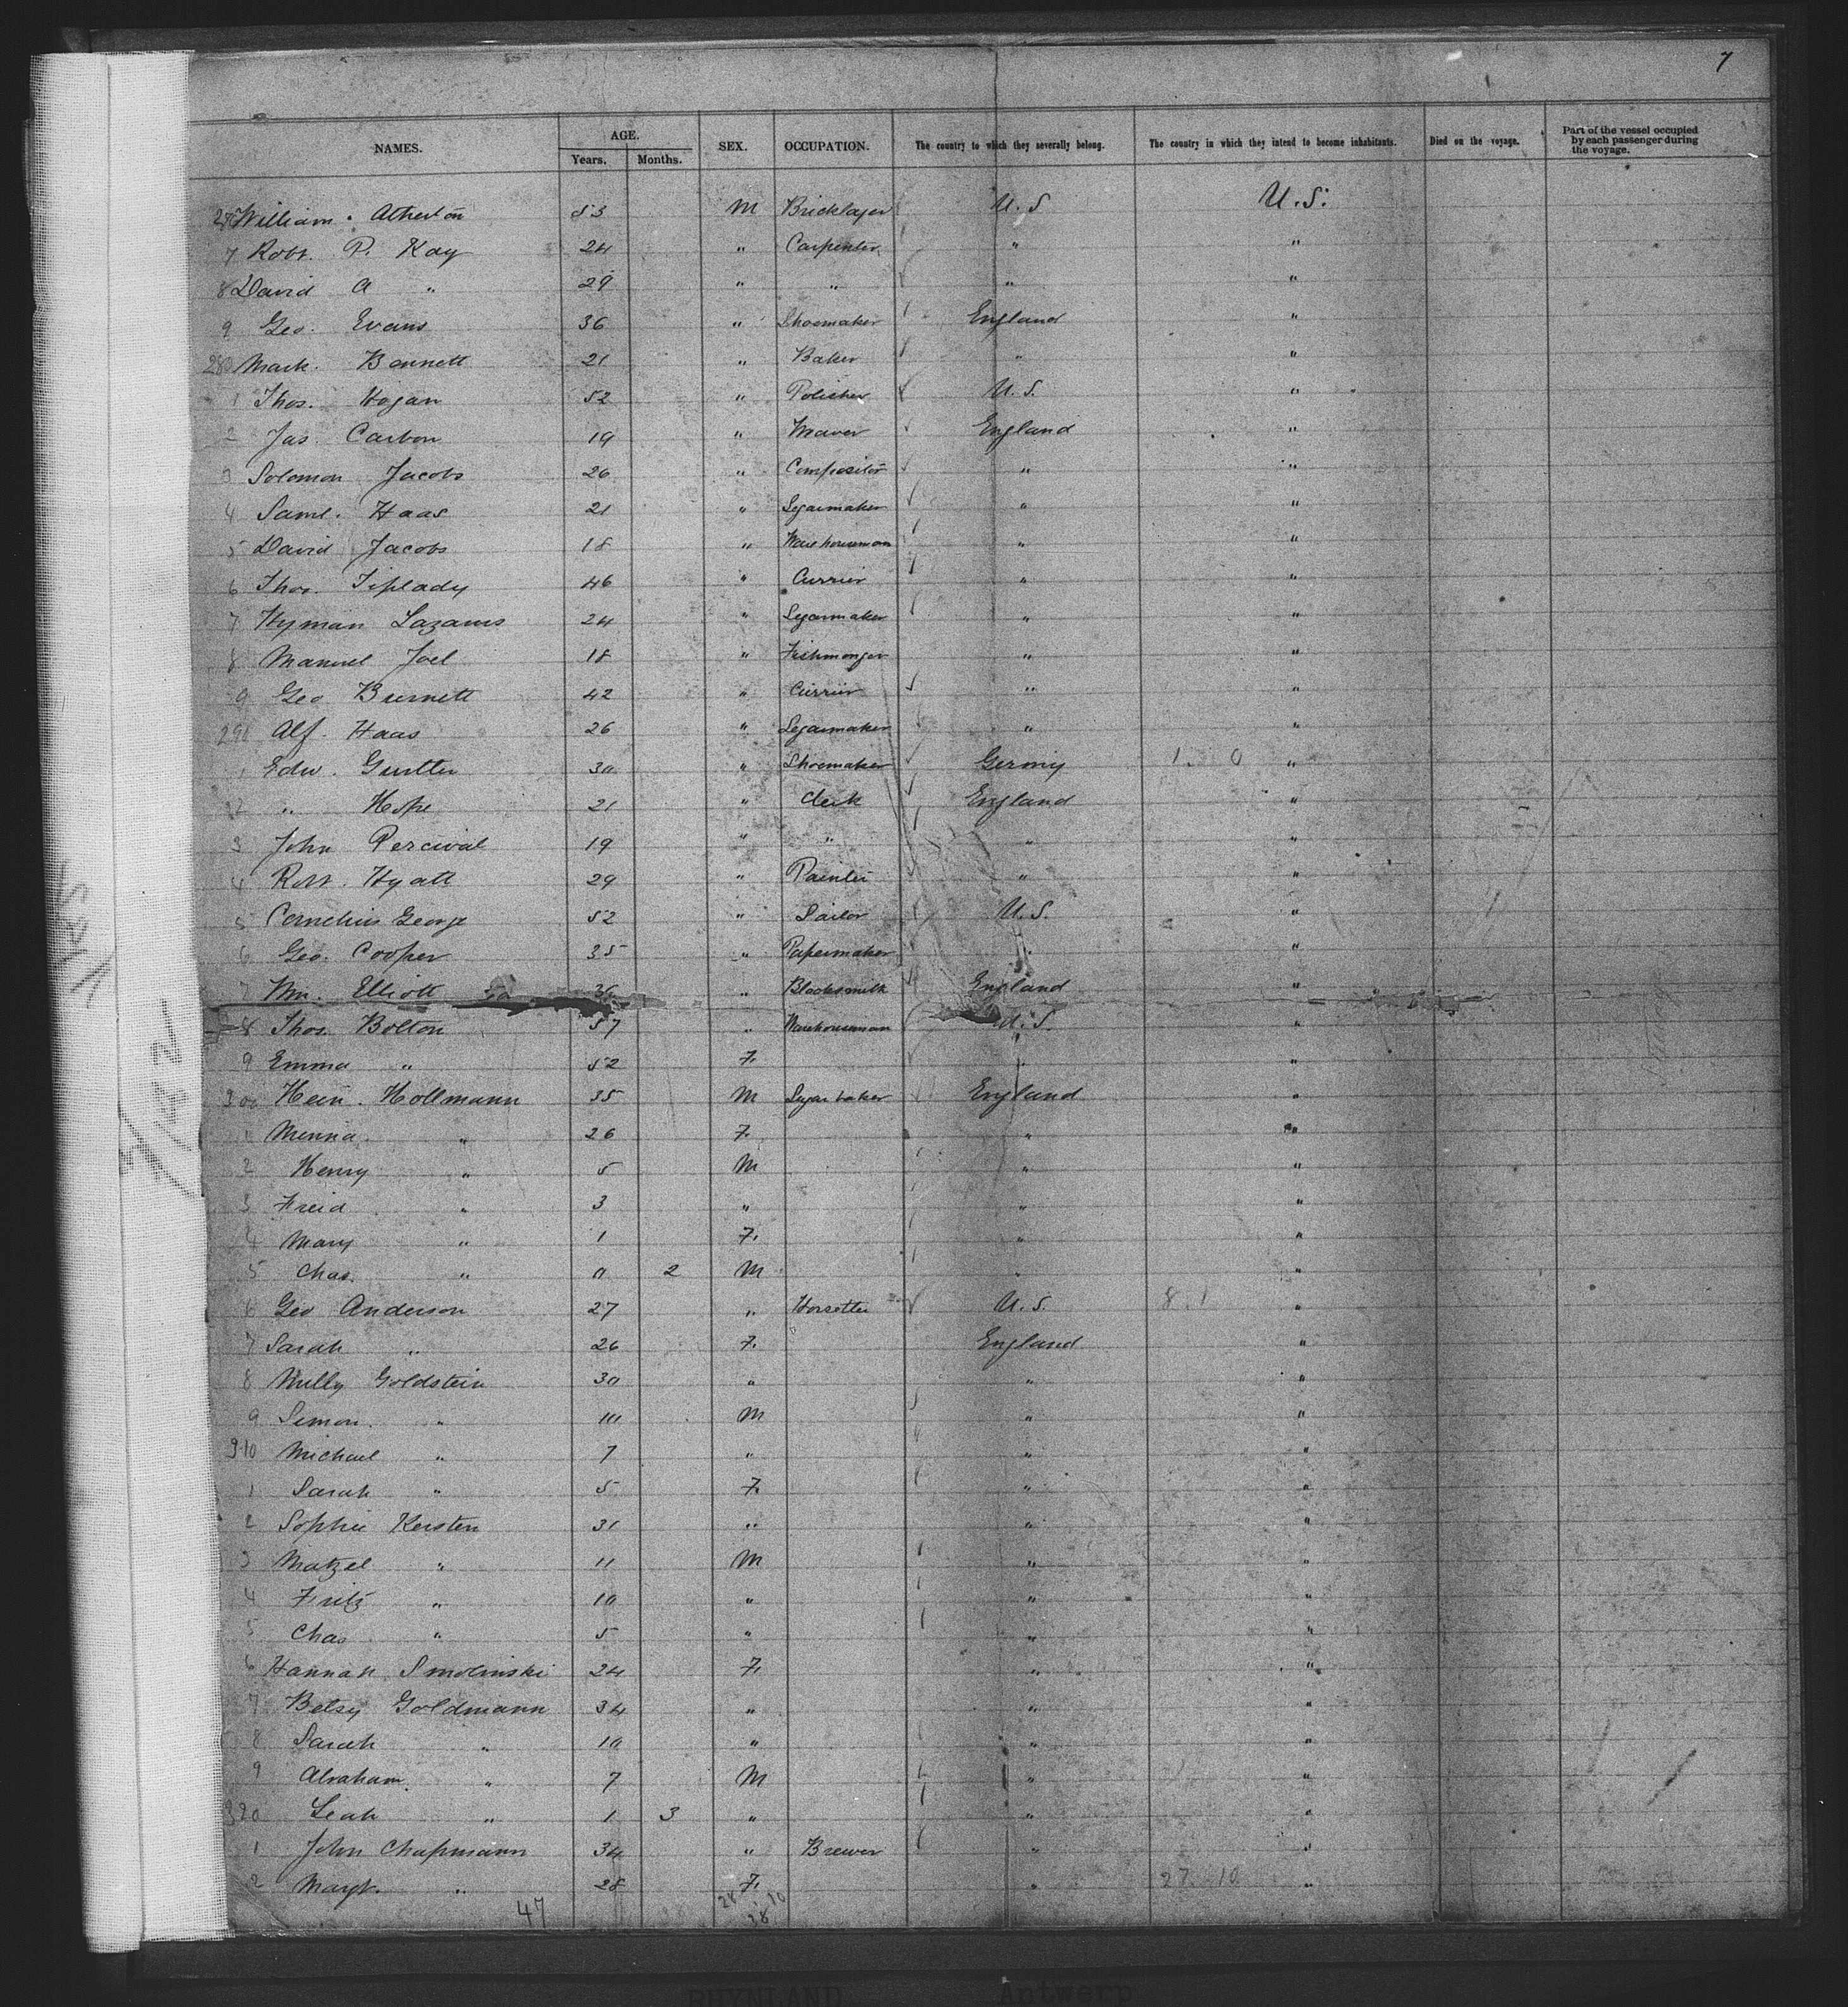 7
NAMES. AGE. Years. Months. SEX. OCCUPATION. The country to which they severally belong. The country in which they intend to become inhabitants. Died on the voyage. Part of the vessel occupied by each passenger during the voyage.
William Atherton 53 M Bricklayer U.S U.S.
7 Robt. P. Kay 24 " Carpenter " "
8 David A " 29 " " " "
9 Geo. Evans 36 " Shoemaker England "
280 Mark. Bennett 21 " Baker " "
1 Thos. Hogan 52 " Polisher U.S. "
2 Jas. Carbon 19 " England "
3 Solomon Jacobs 26 " Compositor " "
4 Saml. Haas 21 " Segarmaker " "
5 David Jacobs 18 " Warehouseman " "
6 Thos. Tiplady 46 " Currier " "
7 Hyman Lazarus 24 " Segarmaker " "
8 Manuel Joel 18 " Fishmonger " "
9 Geo Burnett 42 " Currier " "
290 Alf. Haas 26 " Segarmaker " "
1 Edw. 30 " Shoemaker Germy 1. 0 "
2 " Hope 21 " Clerk England "
3 John Percival 19 " " " "
4 Robt. Hyatt 29 " Painter " "
5 Cornelius George 52 " Sailor U.S. "
6 Geo. Cooper 35 " Papermaker " "
7 Wm. Elliott 36 " Blacksmith England "
8 Thos. Bolton 57 " Warehouseman U.S. "
9 Emma " 52 F. " "
300 Hein. Hollmann 35 M Sugar baker England "
1 Minna " 26 F. " "
2 Henry " 5 M " "
3 Freid " 3 " " "
4 Mary " 1 F. " "
5 Chas. " 0 2 M " "
6 Geo Anderson 27 " U.S. 8.1 "
7 Sarah " 26 F. England "
8 Milly Goldstein 30 " " "
9 Simon. " 10 M " "
310 Michael " 7 " " "
1 Sarah " 5 F. " "
2 Sophie Kersten 31 " " "
3 Matzel " 11 M " "
4 Fritz " 10 " " "
5 Chas " 5 " " "
6 Hannah Smolinski 24 F. " "
7 Betsy Goldmann 34 " " "
8 Sarah " 10 " " "
9 Abraham. " 7 M " "
320 Leah " 1 3 " " "
1 John Chapmann 34 " Brewer " "
2 Margt. " 28 F. " 27. 10 "
47 28 10
28
7/182
RHYNLAND Antwerp